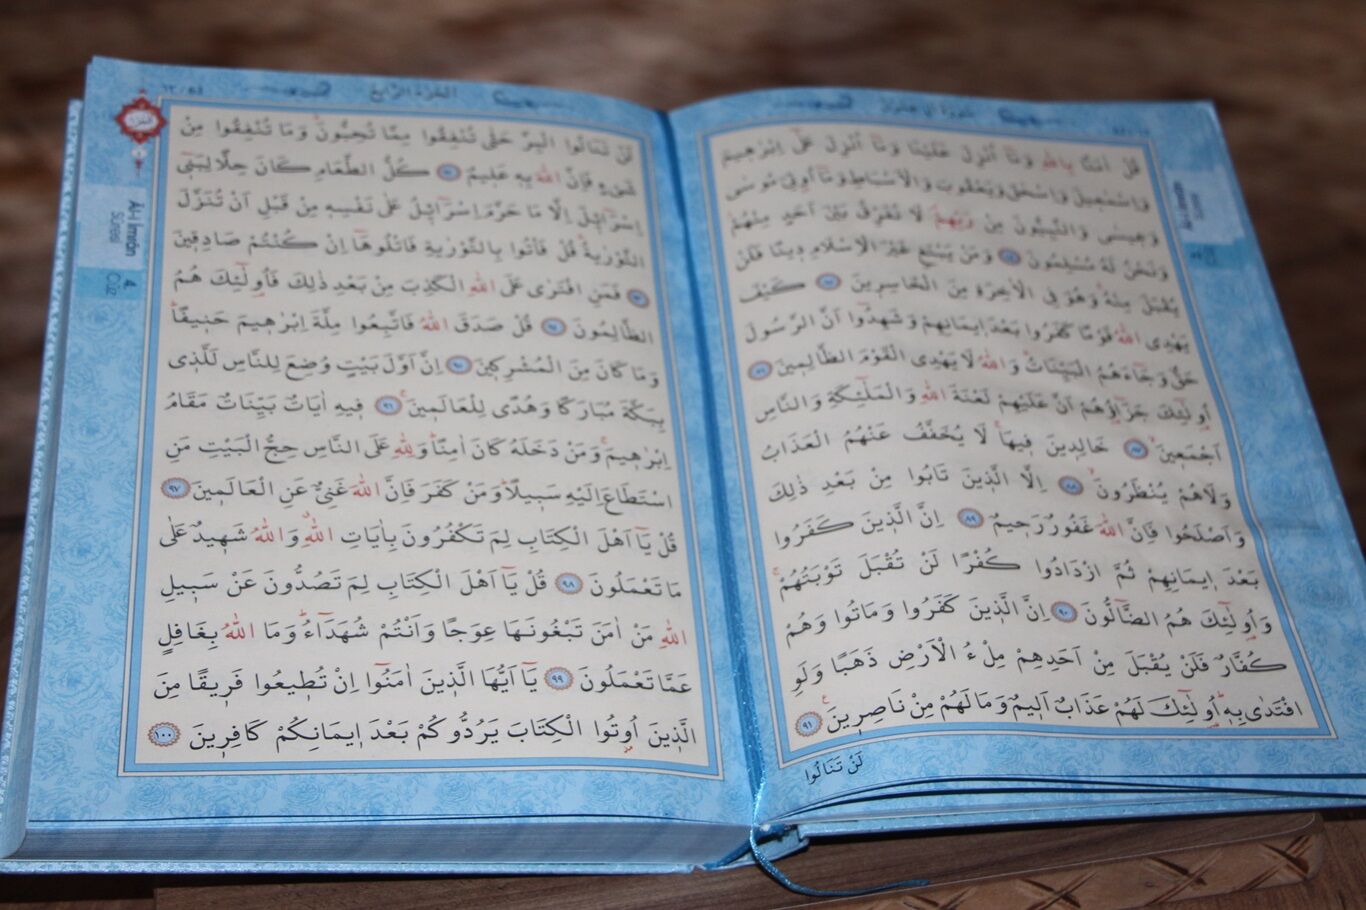 قُلْ اٰمَنَّا بِاللّٰهِ وَمَٓا اُنْزِلَ عَلَيْنَا وَمَٓا اُنْزِلَ عَلٰٓى اِبْرٰه۪يمَ
وَاِسْمٰع۪يلَ وَاِسْحٰقَ وَيَعْقُوبَ وَالْاَسْبَاطِ وَمَٓا اُو۫تِيَ مُوسٰى
وَع۪يسٰى وَالنَّبِيُّونَ مِنْ رَبِّهِمْۖ لَا نُفَرِّقُ بَيْنَ اَحَدٍ مِنْهُمْۘ
وَنَحْنُ لَهُ مُسْلِمُونَ ٨٤ وَمَنْ يَبْتَغِ غَيْرَ الْاِسْلَامِ د۪ينًا فَلَنْ
يُقْبَلَ مِنْهُۚ وَهُوَ فِي الْاٰخِرَةِ مِنَ الْخَاسِر۪ينَ ٨٥ كَيْفَ
يَهْدِي اللّٰهُ قَوْمًا كَفَرُوا بَعْدَ ا۪يمَانِهِمْ وَشَهِدُٓوا اَنَّ الرَّسُولَ
حَقٌّ وَجَٓاءَهُمُ الْبَيِّنَاتُۜ وَاللّٰهُ لَا يَهْدِي الْقَوْمَ الظَّالِم۪ينَ ٨٦
اُو۬لٰٓئِكَ جَزَٓاؤُ۬هُمْ اَنَّ عَلَيْهِمْ لَعْنَةَ اللّٰهِ وَالْمَلٰٓئِكَةِ وَالنَّاسِ
اَجْمَع۪ينَۙ ٨٧ خَالِد۪ينَ ف۪يهَاۚ لَا يُخَفَّفُ عَنْهُمُ الْعَذَابُ
وَلَا هُمْ يُنْظَرُونَۙ ٨٨ اِلَّا الَّذ۪ينَ تَابُوا مِنْ بَعْدِ ذٰلِكَ
وَاَصْلَحُوا فَاِنَّ اللّٰهَ غَفُورٌ رَح۪يمٌ ٨٩ اِنَّ الَّذ۪ينَ كَفَرُوا
بَعْدَ ا۪يمَانِهِمْ ثُمَّ ازْدَادُوا كُفْرًا لَنْ تُقْبَلَ تَوْبَتُهُمْۚ
وَاُو۬لٰٓئِكَ هُمُ الضَّٓالُّونَ ٩٠ اِنَّ الَّذ۪ينَ كَفَرُوا وَمَاتُوا وَهُمْ
كُفَّارٌ فَلَنْ يُقْبَلَ مِنْ اَحَدِهِمْ مِلْءُ الْاَرْضِ ذَهَبًا وَلَوِ
افْتَدٰى بِه۪ۜ اُو۬لٰٓئِكَ لَهُمْ عَذَابٌ اَل۪يمٌ وَمَا لَهُمْ مِنْ نَاصِر۪ينَ۟ ٩١
لَنْ تَنَالُوا
اَلْجُزْءُ الرَّابِعُ
لَنْ تَنَالُوا الْبِرَّ حَتّٰى تُنْفِقُوا مِمَّا تُحِبُّونَۜ وَمَا تُنْفِقُوا مِنْ
شَيْءٍ فَاِنَّ اللّٰهَ بِه۪ عَل۪يمٌ ٩٢ كُلُّ الطَّعَامِ كَانَ حِلًّا لِبَن۪ٓي
اِسْرَٓائ۪لَ اِلَّا مَا حَرَّمَ اِسْرَٓائ۪لُ عَلٰى نَفْسِه۪ مِنْ قَبْلِ اَنْ تُنَزَّلَ
التَّوْرٰيةُۜ قُلْ فَأْتُوا بِالتَّوْرٰيةِ فَاتْلُوهَٓا اِنْ كُنْتُمْ صَادِق۪ينَ
٩٣ فَمَنِ افْتَرٰى عَلَى اللّٰهِ الْكَذِبَ مِنْ بَعْدِ ذٰلِكَ فَاُو۬لٰٓئِكَ هُمُ
الظَّالِمُونَ ٩٤ قُلْ صَدَقَ اللّٰهُ فَاتَّبِعُوا مِلَّةَ اِبْرٰه۪يمَ حَن۪يفًاۜ
وَمَا كَانَ مِنَ الْمُشْرِك۪ينَ ٩٥ اِنَّ اَوَّلَ بَيْتٍ وُضِعَ لِلنَّاسِ لَلَّذ۪ي
بِبَكَّةَ مُبَارَكًا وَهُدًى لِلْعَالَم۪ينَۚ ٩٦ ف۪يهِ اٰيَاتٌ بَيِّنَاتٌ مَقَامُ
اِبْرٰه۪يمَۚ وَمَنْ دَخَلَهُ كَانَ اٰمِنًاۜ وَلِلّٰهِ عَلَى النَّاسِ حِجُّ الْبَيْتِ مَنِ
اسْتَطَاعَ اِلَيْهِ سَب۪يلًاۜ وَمَنْ كَفَرَ فَاِنَّ اللّٰهَ غَنِيٌّ عَنِ الْعَالَم۪ينَ ٩٧
قُلْ يَٓا اَهْلَ الْكِتَابِ لِمَ تَكْفُرُونَ بِاٰيَاتِ اللّٰهِۗ وَاللّٰهُ شَه۪يدٌ عَلٰى
مَا تَعْمَلُونَ ٩٨ قُلْ يَٓا اَهْلَ الْكِتَابِ لِمَ تَصُدُّونَ عَنْ سَب۪يلِ
اللّٰهِ مَنْ اٰمَنَ تَبْغُونَهَا عِوَجًا وَاَنْتُمْ شُهَدَٓاءُۜ وَمَا اللّٰهُ بِغَافِلٍ
عَمَّا تَعْمَلُونَ ٩٩ يَٓا اَيُّهَا الَّذ۪ينَ اٰمَنُٓوا اِنْ تُط۪يعُوا فَر۪يقًا مِنَ
الَّذ۪ينَ اُو۫تُوا الْكِتَابَ يَرُدُّوكُمْ بَعْدَ ا۪يمَانِكُمْ كَافِر۪ينَ ١٠٠
Âl-i İmrân
Sûresi
4.
Cüz